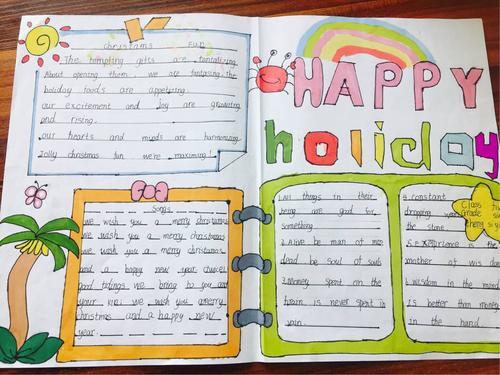 Christams Fun
The tempting gifts are tantalizing.
About opening them we are fantasing. the
holiday foods are appetizing
our excitement and Joy are growing
and rising.
our hearts and minds are harmonizing
Jolly christmas fun we're maximizing!
HAPPY
holiday
Songs
we wish you a merry christmas
we wish you a merry christmas
we wish you a merry christmas
and a happy new year
good tidings we bring to you and
your we wish you a merry
christmas and a happy new
year.
1.All things in their
being are good for
something.
2.Alive be man of men
dead be soul of souls
3.Money spent on the
brain is never spent in
vain.
4.constant
dropping wears
the stone.
5.Experience is the
mother of wisdom
6.wisdom in the mind
is better than money
in the hand.
Class
Grade six